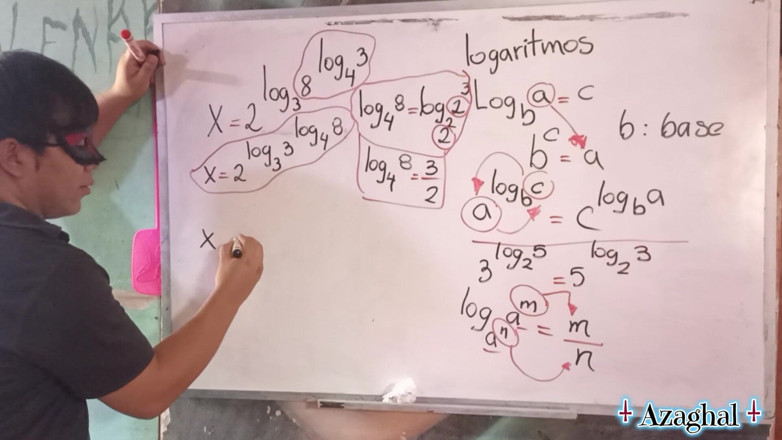 logaritmos
X = 2^log_3 8^log_4 3
log_4 8 = log_2^2 2^3
Log_b a = c
b : base
b^c = a
X = 2^log_3 3^log_4 8
log_4 8 = 3/2
a^log_b c = c^log_b a
3^log_2 5 = 5^log_2 3
x
log_a^n a^m = m/n
Azaghal